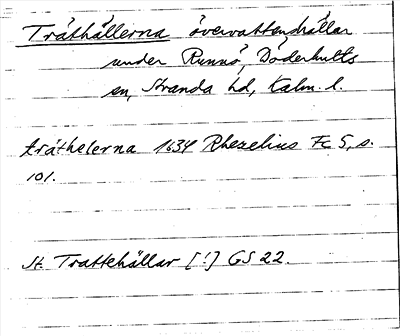 Tråthällerna övervattenshällar
under Runnö, Döderhults
sn, Stranda hd, Kalm. l.
tråthelerna 1634 Rhezelius Fc 5, s.
101.
St. Trattehällar [!] GS 22.